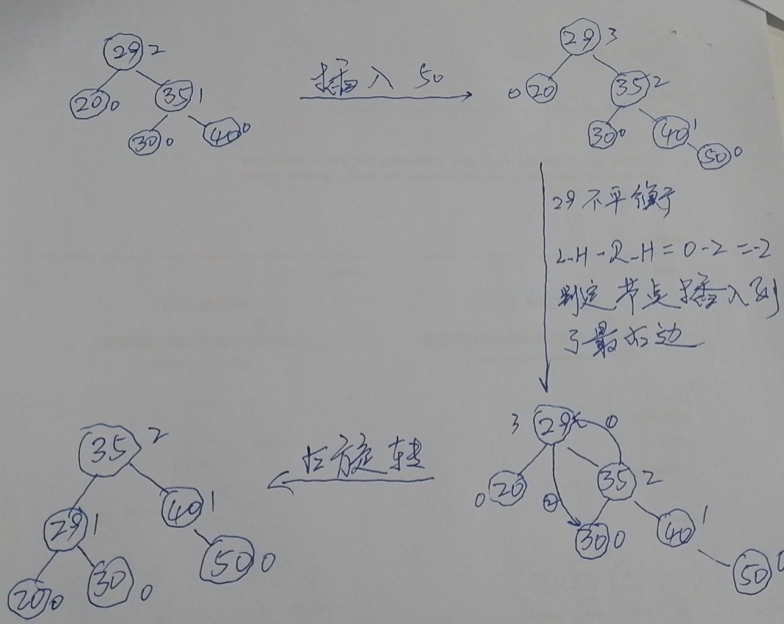 29 2
20 0 35 1
30 0 40 0
插入 50
29 3
0 20 35 2
30 0 40 1
50 0
29 不平衡了
L-H-R-H=0-2=-2
判定节点插入到
了最右边
3 29 ①
0 20 35 2
②
30 0 40 1
50 0
左旋转
35 2
29 1 40 1
20 0 30 0 50 0